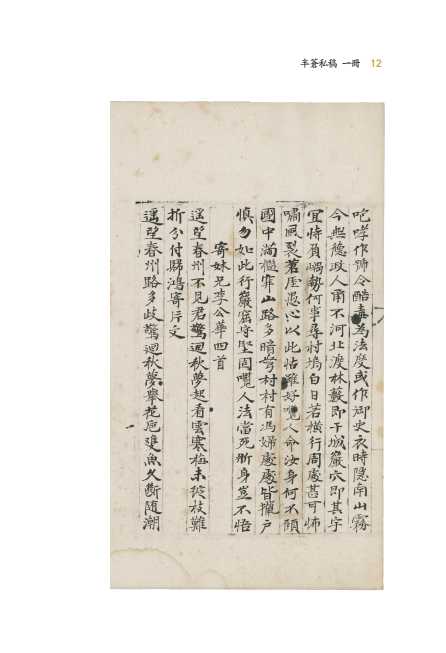 半蒼私稿 一冊 12
咆哮作沛令酷毒為法度或作御史衣時隱南山霧
今無德政人甯不河北渡林藪即干城巖穴即其宇
宜恃負嵎勢何事尋村塢白日若橫行周處甚可怖
嘯風裂蒼崖愚心以此怙雖好嚙人命汝身何不顧
國中滿檻穽山路多暗弩村村有馮婦處處皆攫戶
慎勿如此行巖窟守堅固嚙人法當死斯身豈不悟
寄妹兄李公華四首
遙望春州不見君驚迴秋夢起看雲寒梅未從枝難
折分付歸鴻寄片文
遙望春州路多歧驚迴秋夢攀花卮雙魚久斷隨潮